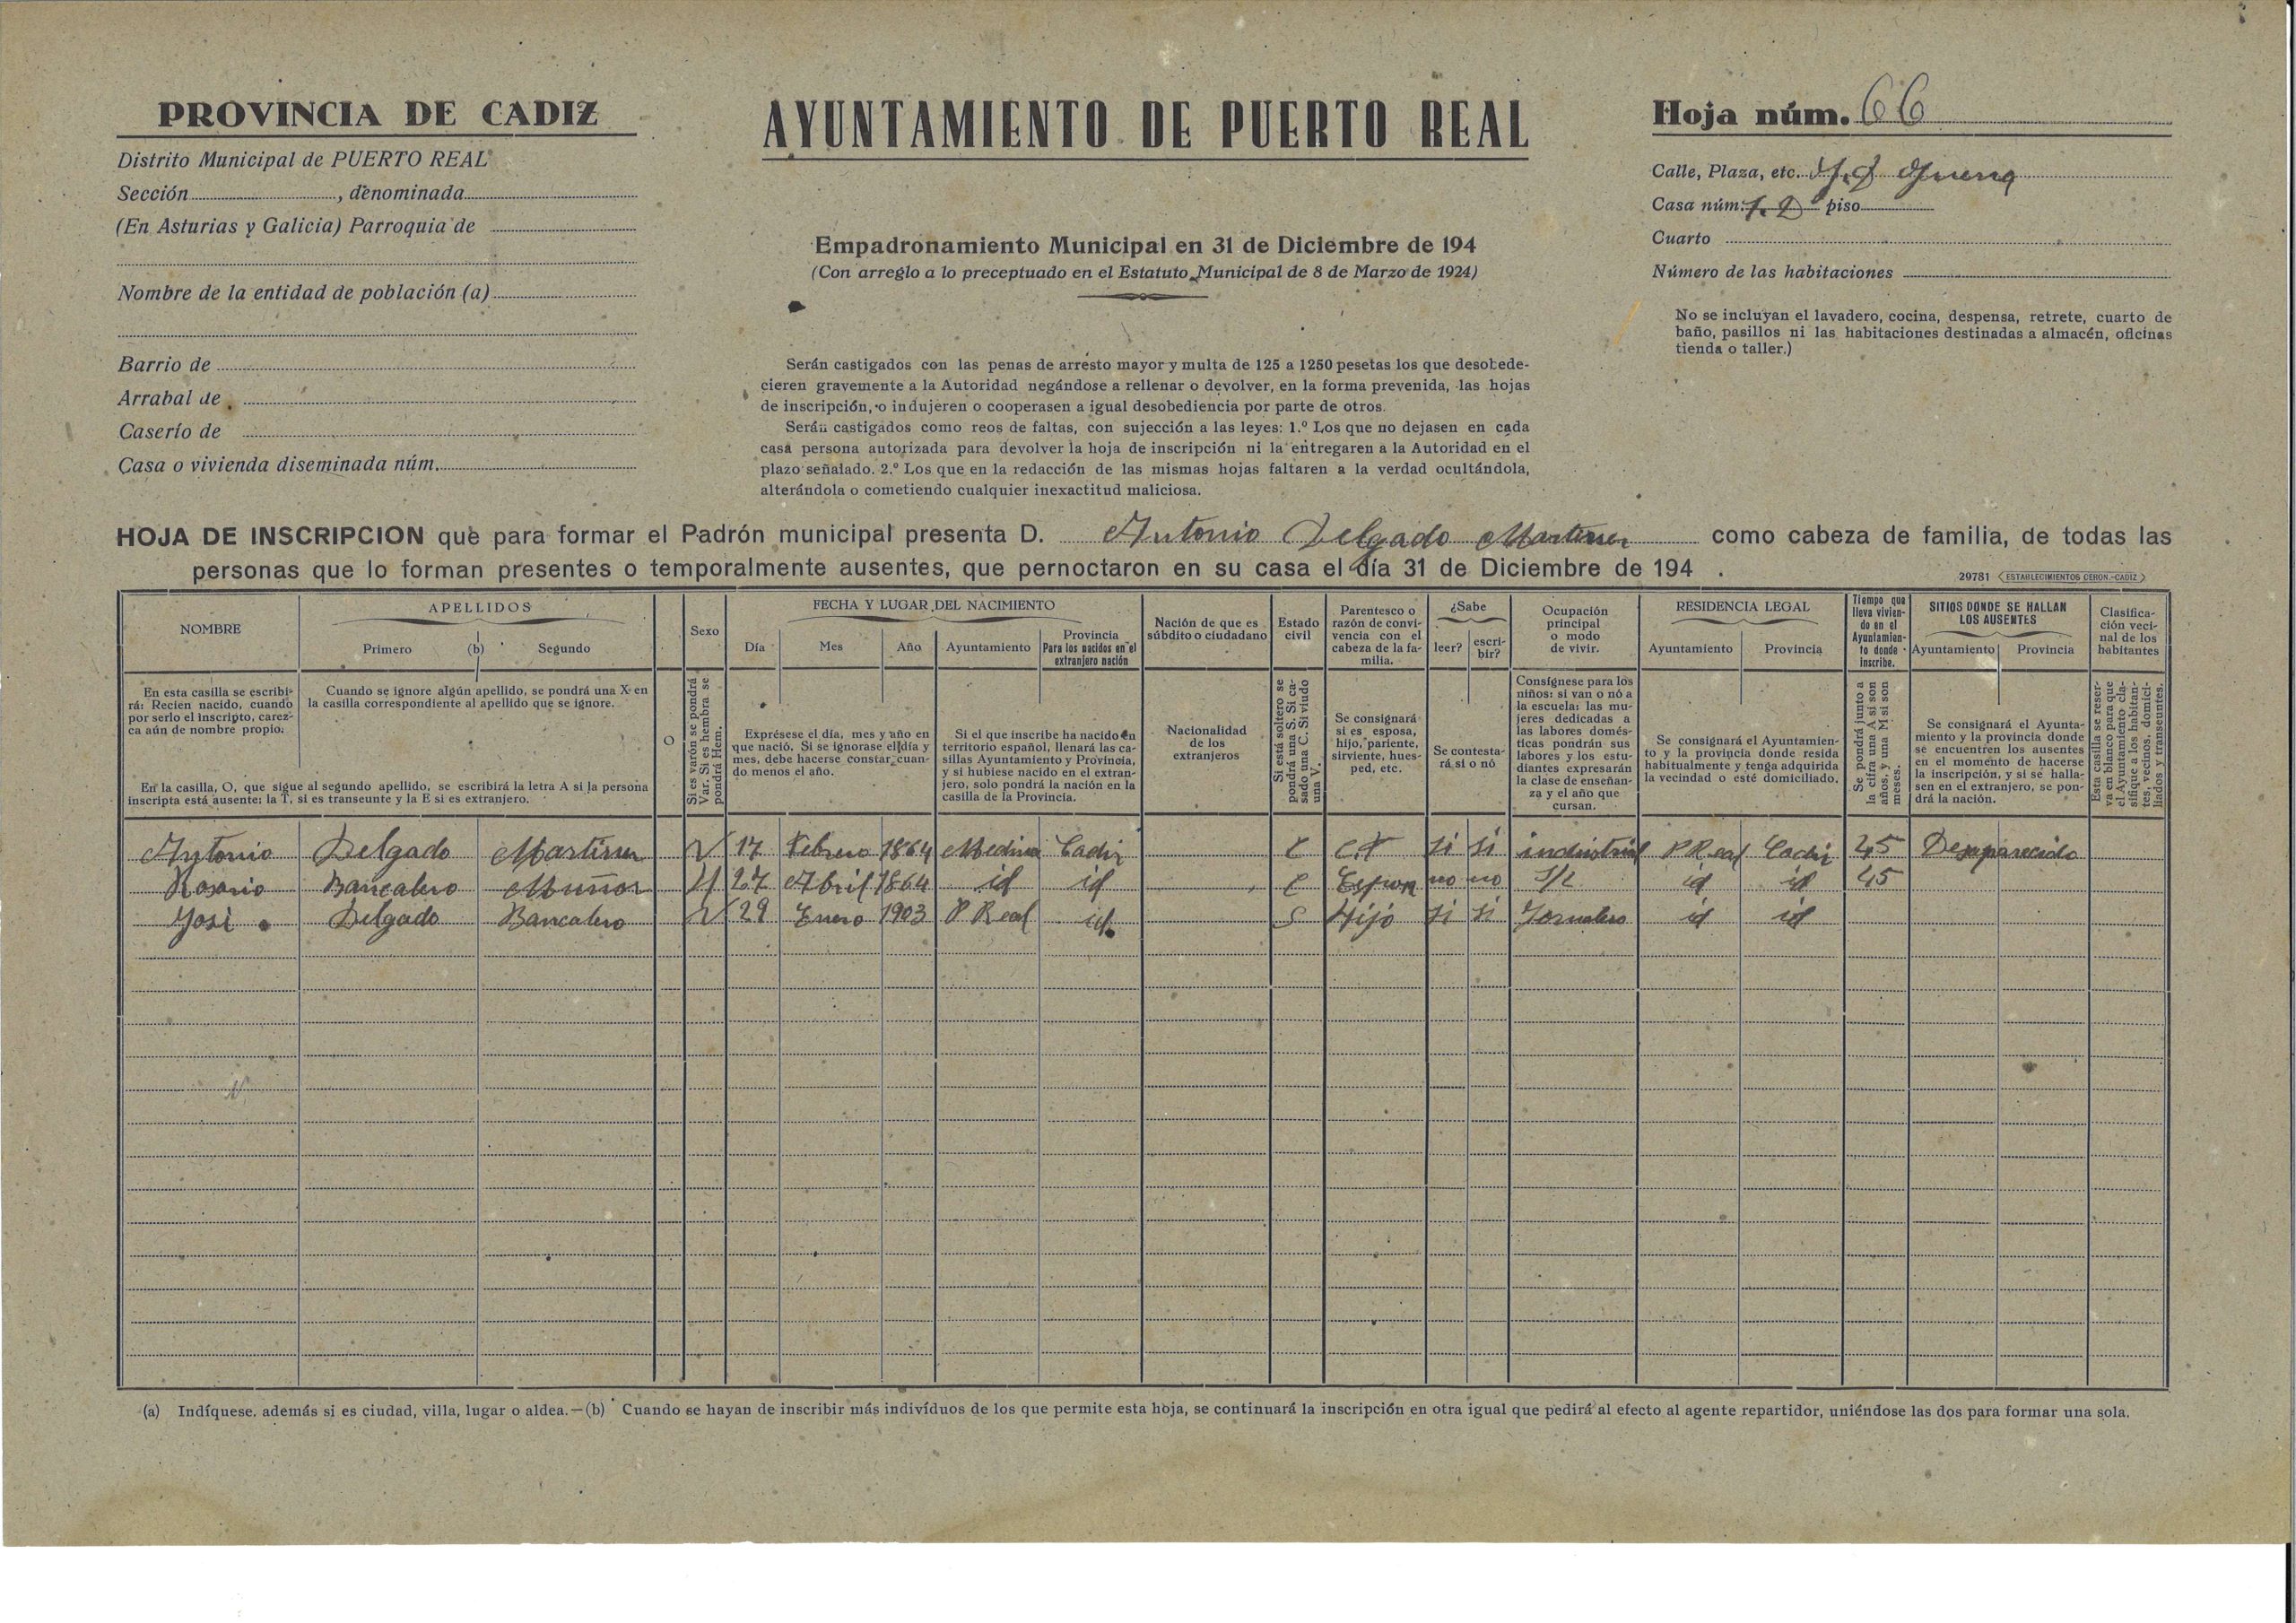 PROVINCIA DE CADIZ
Distrito Municipal de PUERTO REAL
Sección , denominada
(En Asturias y Galicia) Parroquia de
Nombre de la entidad de población (a)
Barrio de
Arrabal de
Caserío de
Casa o vivienda diseminada núm.
AYUNTAMIENTO DE PUERTO REAL
Empadronamiento Municipal en 31 de Diciembre de 194
(Con arreglo a lo preceptuado en el Estatuto Municipal de 8 de Marzo de 1924)
Serán castigados con las penas de arresto mayor y multa de 125 a 1250 pesetas los que desobede-
cieren gravemente a la Autoridad negándose a rellenar o devolver, en la forma prevenida, las hojas
de inscripción, o indujeren o cooperasen a igual desobediencia por parte de otros.
Serán castigados como reos de faltas, con sujección a las leyes: 1.º Los que no dejasen en cada
casa persona autorizada para devolver la hoja de inscripción ni la entregaren a la Autoridad en el
plazo señalado. 2.º Los que en la redacción de las mismas hojas faltaren a la verdad ocultándola,
alterándola o cometiendo cualquier inexactitud maliciosa.
Hoja núm. 66
Calle, Plaza, etc.
Casa núm. piso
Cuarto
Número de las habitaciones
No se incluyan el lavadero, cocina, despensa, retrete, cuarto de
baño, pasillos ni las habitaciones destinadas a almacén, oficinas
tienda o taller.)
HOJA DE INSCRIPCION que para formar el Padrón municipal presenta D. Antonio Delgado Martinez como cabeza de familia, de todas las
personas que lo forman presentes o temporalmente ausentes, que pernoctaron en su casa el día 31 de Diciembre de 194 .
29781 ESTABLECIMIENTOS CERON.-CADIZ
NOMBRE
APELLIDOS
Primero (b) Segundo
O
Sexo
FECHA Y LUGAR DEL NACIMIENTO
Día Mes Año Ayuntamiento
Provincia
Para los nacidos en el
extranjero nación
Nación de que es
súbdito o ciudadano
Estado
civil
Parentesco o
razón de convi-
vencia con el
cabeza de la fa-
milia.
¿Sabe
leer? escri-
bir?
Ocupación
principal
o modo
de vivir.
RESIDENCIA LEGAL
Ayuntamiento Provincia
Tiempo que
lleva vivien-
do en el
Ayuntamien-
to donde
inscribe.
SITIOS DONDE SE HALLAN
LOS AUSENTES
Ayuntamiento Provincia
Clasifica-
ción veci-
nal de los
habitantes
En esta casilla se escribi-
rá: Recien nacido, cuando
por serlo el inscripto, carez-
ca aún de nombre propio.
Cuando se ignore algún apellido, se pondrá una X en
la casilla correspondiente al apellido que se ignore.
En la casilla, O, que sigue al segundo apellido, se escribirá la letra A si la persona
inscripta está ausente: la T, si es transeunte y la E si es extranjero.
Si es varón se pondrá
Var. Si es hembra se
pondrá Hem.
Exprésese el día, mes y año en
que nació. Si se ignorase el día y
mes, debe hacerse constar cuan-
do menos el año.
Si el que inscribe ha nacido en
territorio español, llenará las ca-
sillas Ayuntamiento y Provincia,
y si hubiese nacido en el extran-
jero, solo pondrá la nación en la
casilla de la Provincia.
Nacionalidad
de los
extranjeros
Si está soltero se
pondrá una S. Si ca-
sado una C. Si viudo
una V.
Se consignará
si es esposa,
hijo, pariente,
sirviente, hues-
ped, etc.
Se contesta-
rá si o nó
Consígnese para los
niños: si van o nó a
la escuela: las mu-
jeres dedicadas a
las labores domés-
ticas pondrán sus
labores y los estu-
diantes expresarán
la clase de enseñan-
za y el año que
cursan.
Se consignará el Ayuntamien-
to y la provincia donde resida
habitualmente y tenga adquirida
la vecindad o esté domiciliado.
Se pondrá junto a
la cifra una A si son
años, y una M si son
meses.
Se consignará el Ayunta-
miento y la provincia donde
se encuentren los ausentes
en el momento de hacerse
la inscripción, y si se halla-
sen en el extranjero, se pon-
drá la nación.
Esta casilla se reser-
va en blanco para que
el Ayuntamiento cla-
sifique a los habitan-
tes, vecinos, domici-
liados y transeuntes.
Antonio Delgado Martinez V 17 Febrero 1864 Medina Cadiz C C.F si si industrial P Real Cadiz 45 Desaparecido
Rosario Bancalero Muñoz H 27 Abril 1864 id id C Esposa no no S/L id id 45
José Delgado Bancalero V 29 Enero 1903 P Real id S Hijo si si Jornalero id id
(a) Indíquese. además si es ciudad, villa, lugar o aldea.—(b) Cuando se hayan de inscribir más indivíduos de los que permite esta hoja, se continuará la inscripción en otra igual que pedirá al efecto al agente repartidor, uniéndose las dos para formar una sola.